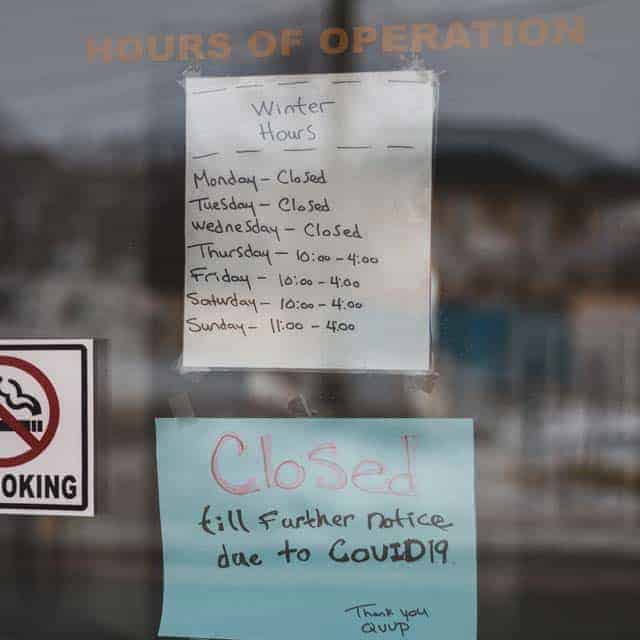 HOURS OF OPERATION
Winter
Hours
Monday - Closed
Tuesday - Closed
Wednesday - Closed
Thursday - 10:00 - 4:00
Friday - 10:00 - 4:00
Saturday - 10:00 - 4:00
Sunday - 11:00 - 4:00
OKING
Closed
till Further notice
due to COVID19
Thank you
QUUP